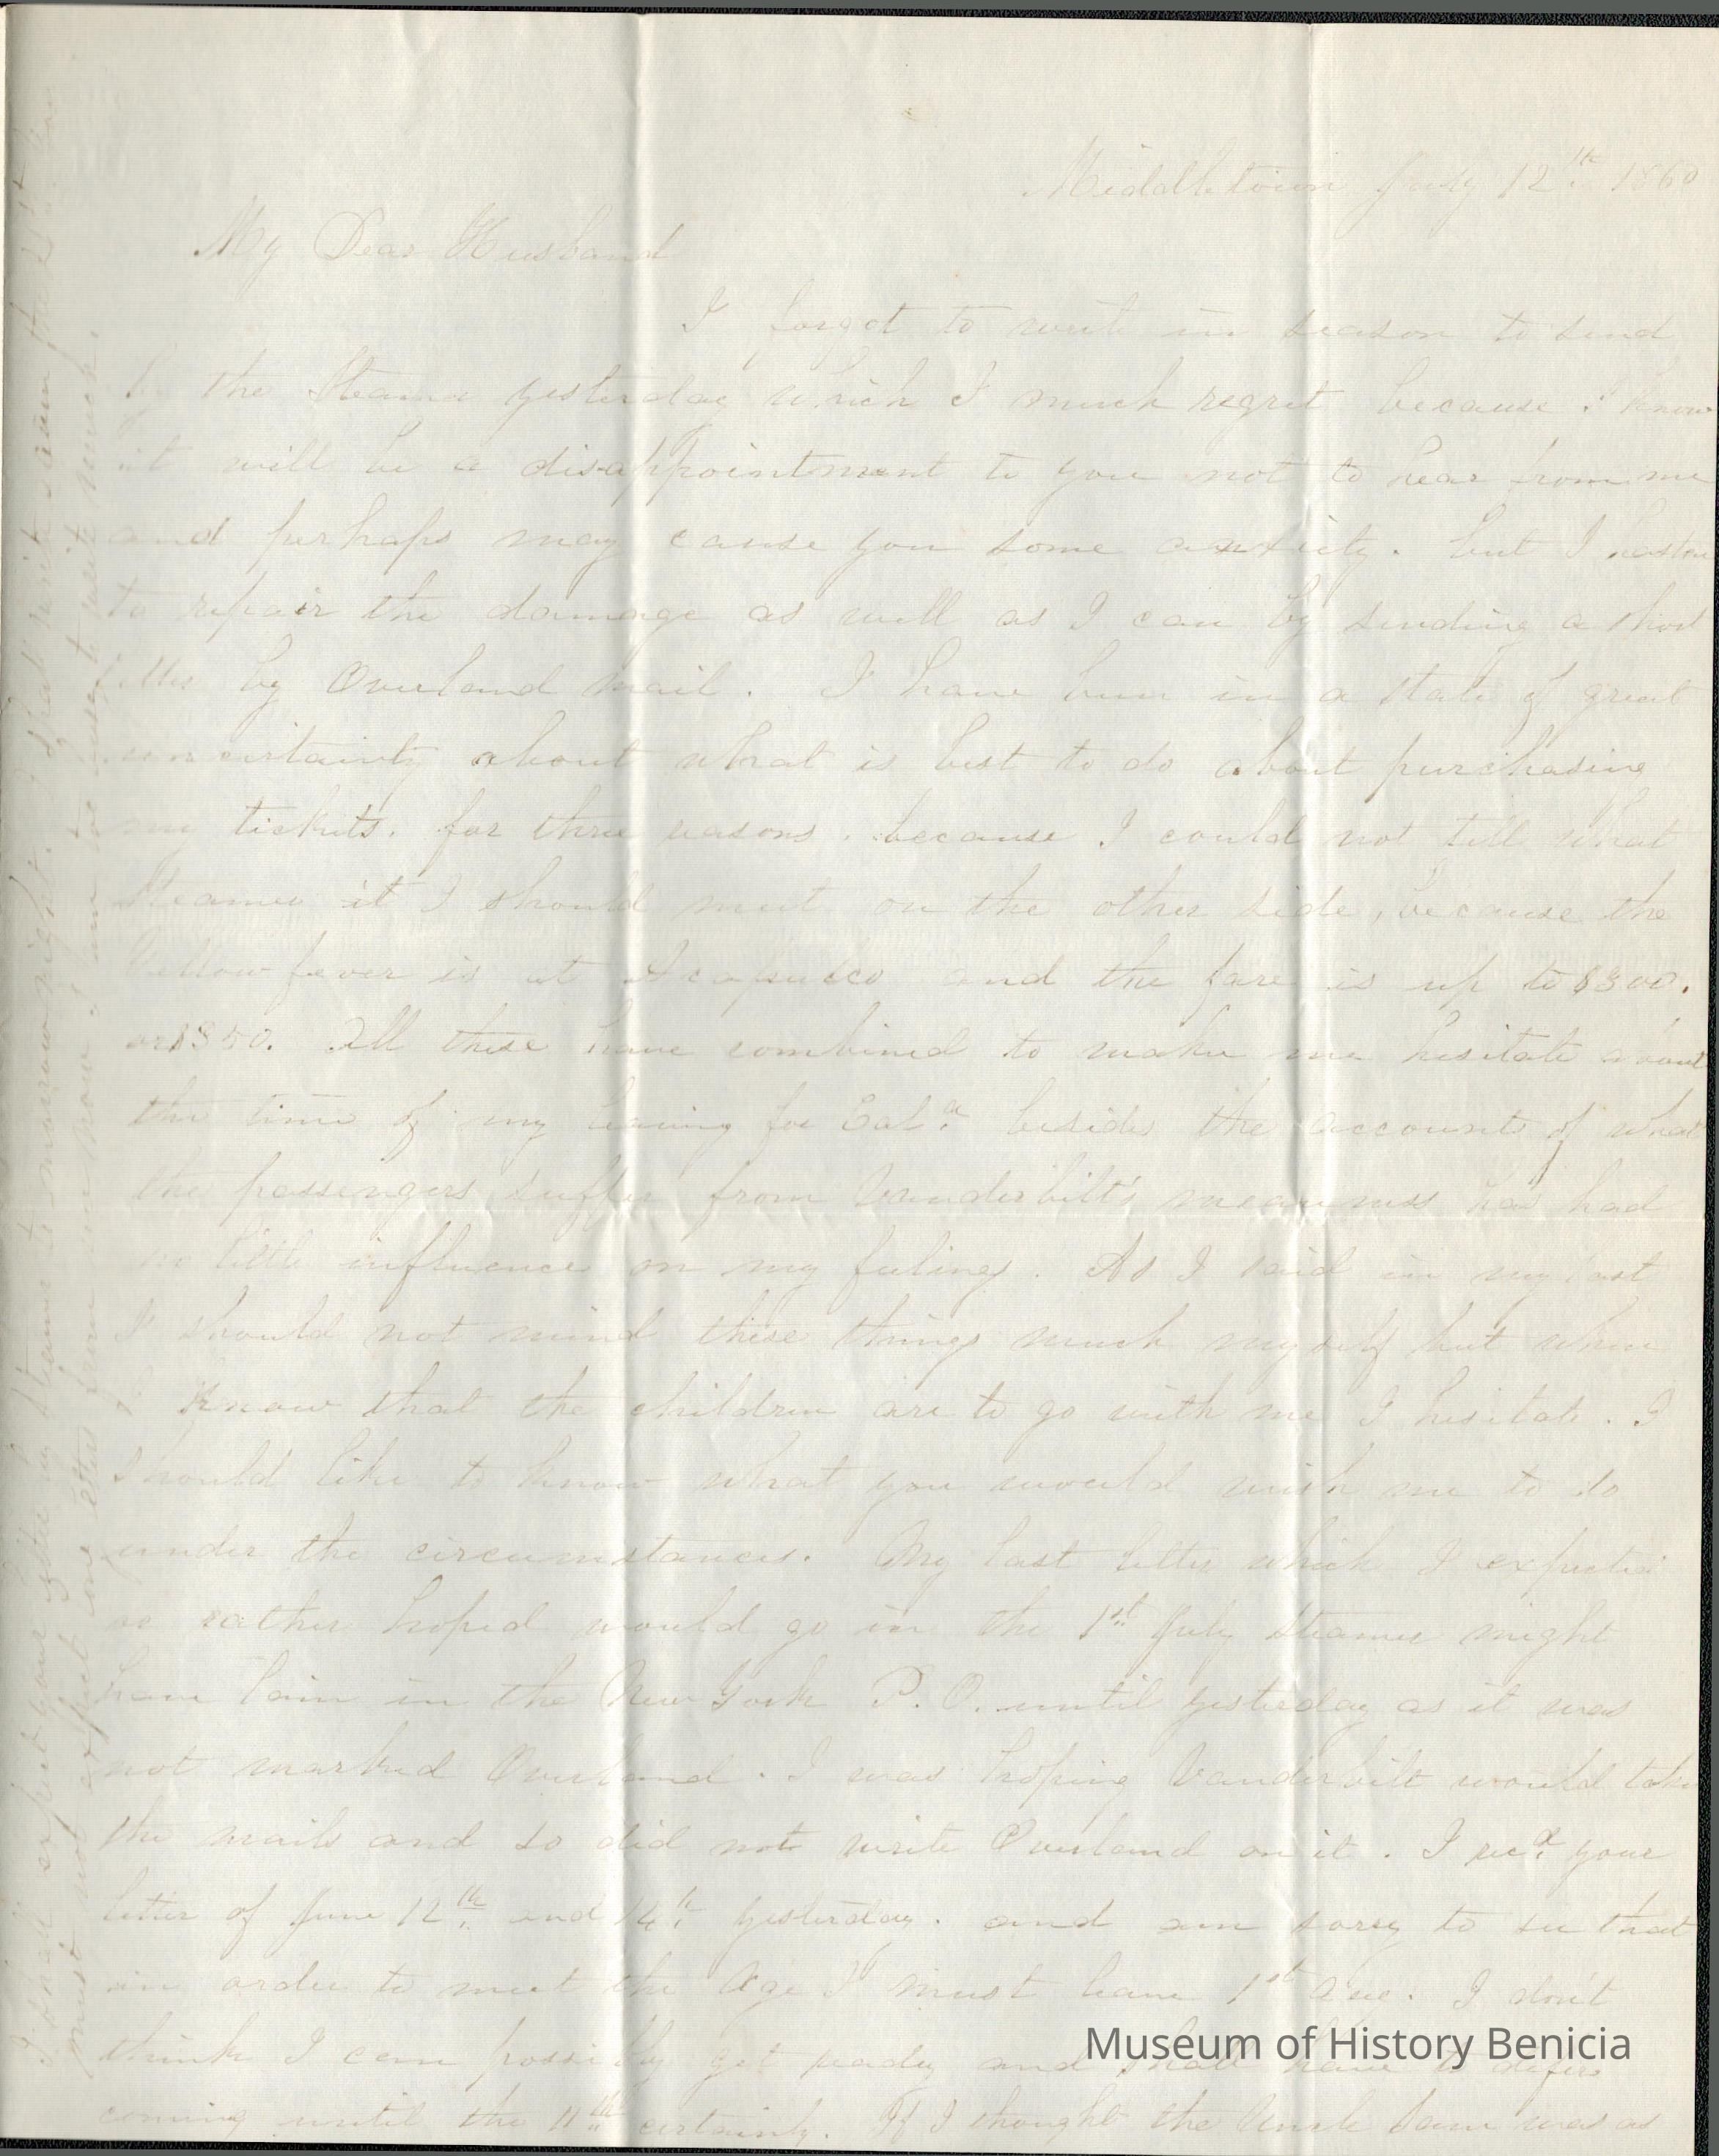 Middletown July 12th 1860
My Dear Husband
I forgot to write in season to send
by the Steamer yesterday which I much regret because I know
it will be a disappointment to you not to hear from me
and perhaps may cause you some anxiety. but I hasten
to repair the damage as well as I can by sending a short
letter by Overland Mail. I have been in a state of great
uncertainty about what is best to do about purchasing
my tickets. for three reasons. because I could not tell what
Steamer it I should meet on the other side, because the
Yellow fever is at Acapulco and the fare is up to $300.
or $350. All these have combined to make me hesitate about
the time of my leaving for Cala. besides the accounts of what
the passengers suffer from Vanderbilt's meanness has had
no little influence on my feelings. As I said in my last
I should not mind these things much myself but when
I know that the children are to go with me I hesitate. I
should like to know what you would wish me to do
under the circumstances. My last letter which I expected
or rather hoped would go in the 1st July Steamer might
have lain in the New York P.O. until yesterday as it was
not marked Overland. I was hoping Vanderbilt would take
the mails and so did not write Overland on it. I recd. your
letter of June 12th and 14th yesterday. and am sorry to see that
in order to meet the Age I must leave 1st Aug. I don't
think I can possibly get ready and shall have to defer
coming until the 11th certainly. If I thought the Uncle Sam was as
I shall expect your letter by Steamer to morrow night. I shall write again the 21st
must not expect one letter from me now I am too busy to write much.
Museum of History Benicia